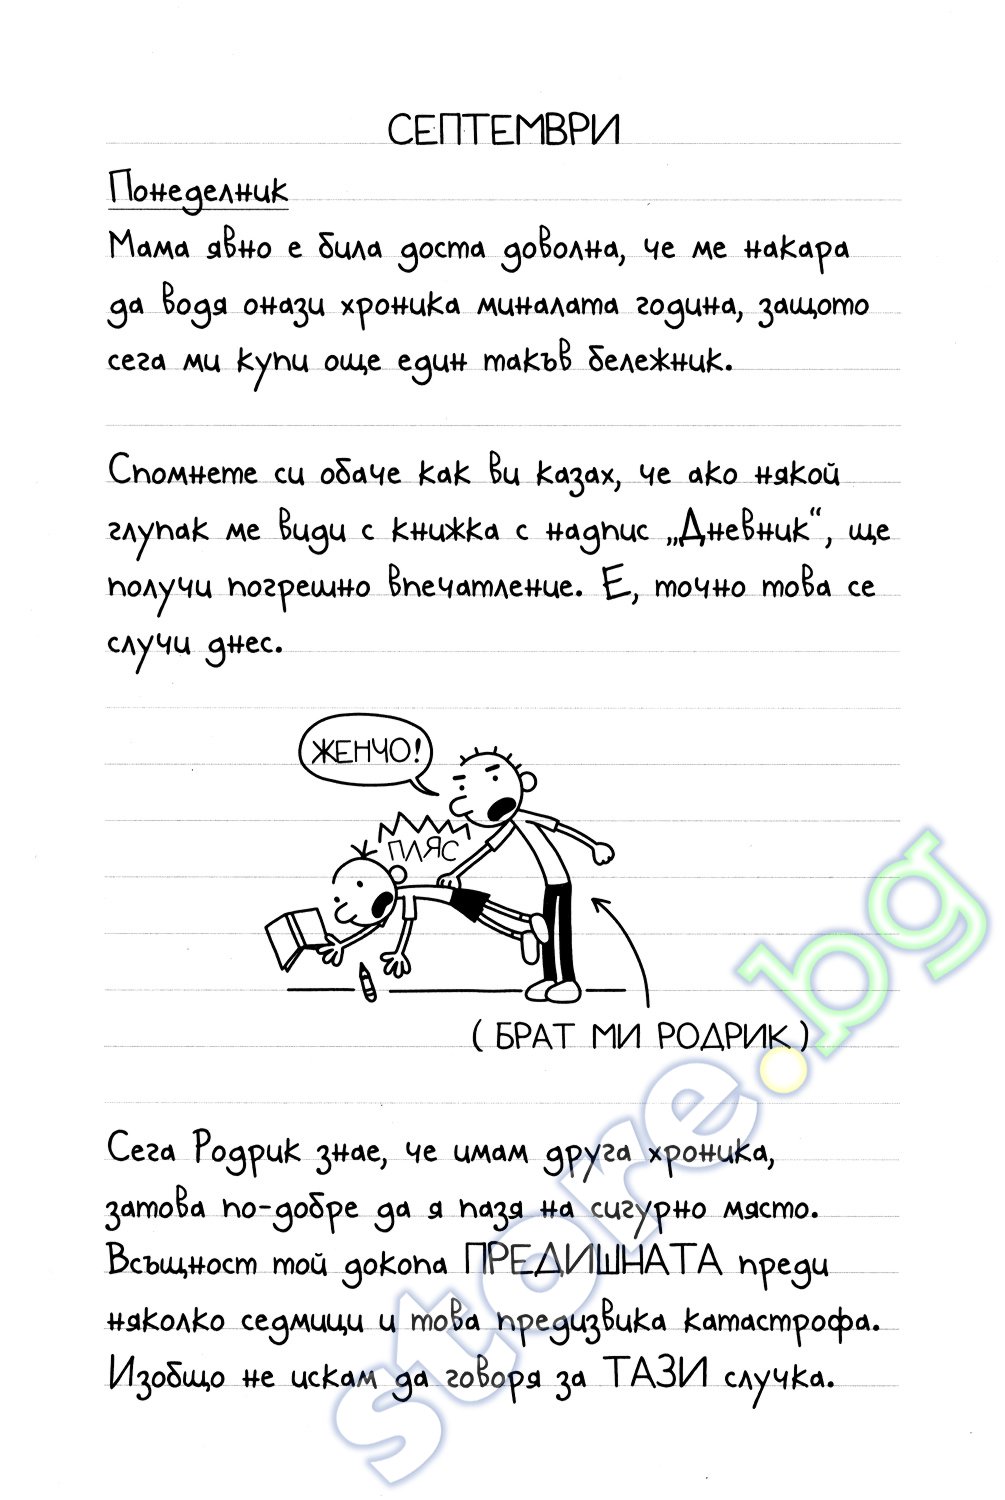 СЕПТЕМВРИ
Понеделник
Мама явно е била доста доволна, че ме накара
да водя онази хроника миналата година, защото
сега ми купи още един такъв бележник.
Спомнете си обаче как ви казах, че ако някой
глупак ме види с книжка с надпис „Дневник“, ще
получи погрешно впечатление. Е, точно това се
случи днес.
ЖЕНЧО!
ПЛЯС
( БРАТ МИ РОДРИК )
Сега Родрик знае, че имам друга хроника,
затова по-добре да я пазя на сигурно място.
Всъщност той докопа ПРЕДИШНАТА преди
няколко седмици и това предизвика катастрофа.
Изобщо не искам да говоря за ТАЗИ случка.
store.bg